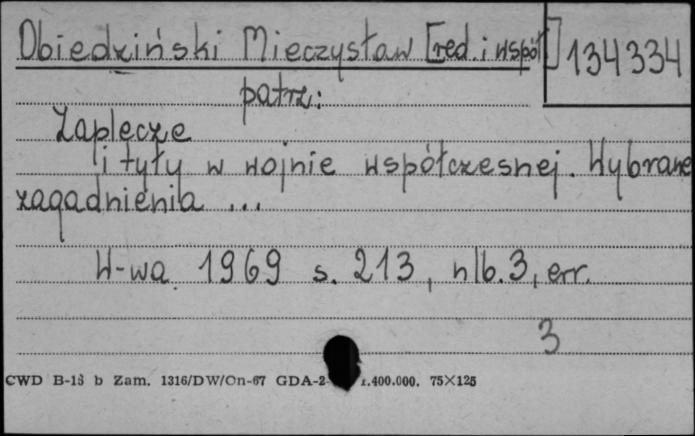 Obiedziński Mieczysław [red. i współ] 134334
patrz:
Zaplecze
i tyły w wojnie współczesnej. Wybrane
zagadnienia ...
W-wa 1969 s. 213, nlb. 3, err.
3
CWD B-18 b Zam. 1316/DW/On-67 GDA-2- 1.400.000. 75×125